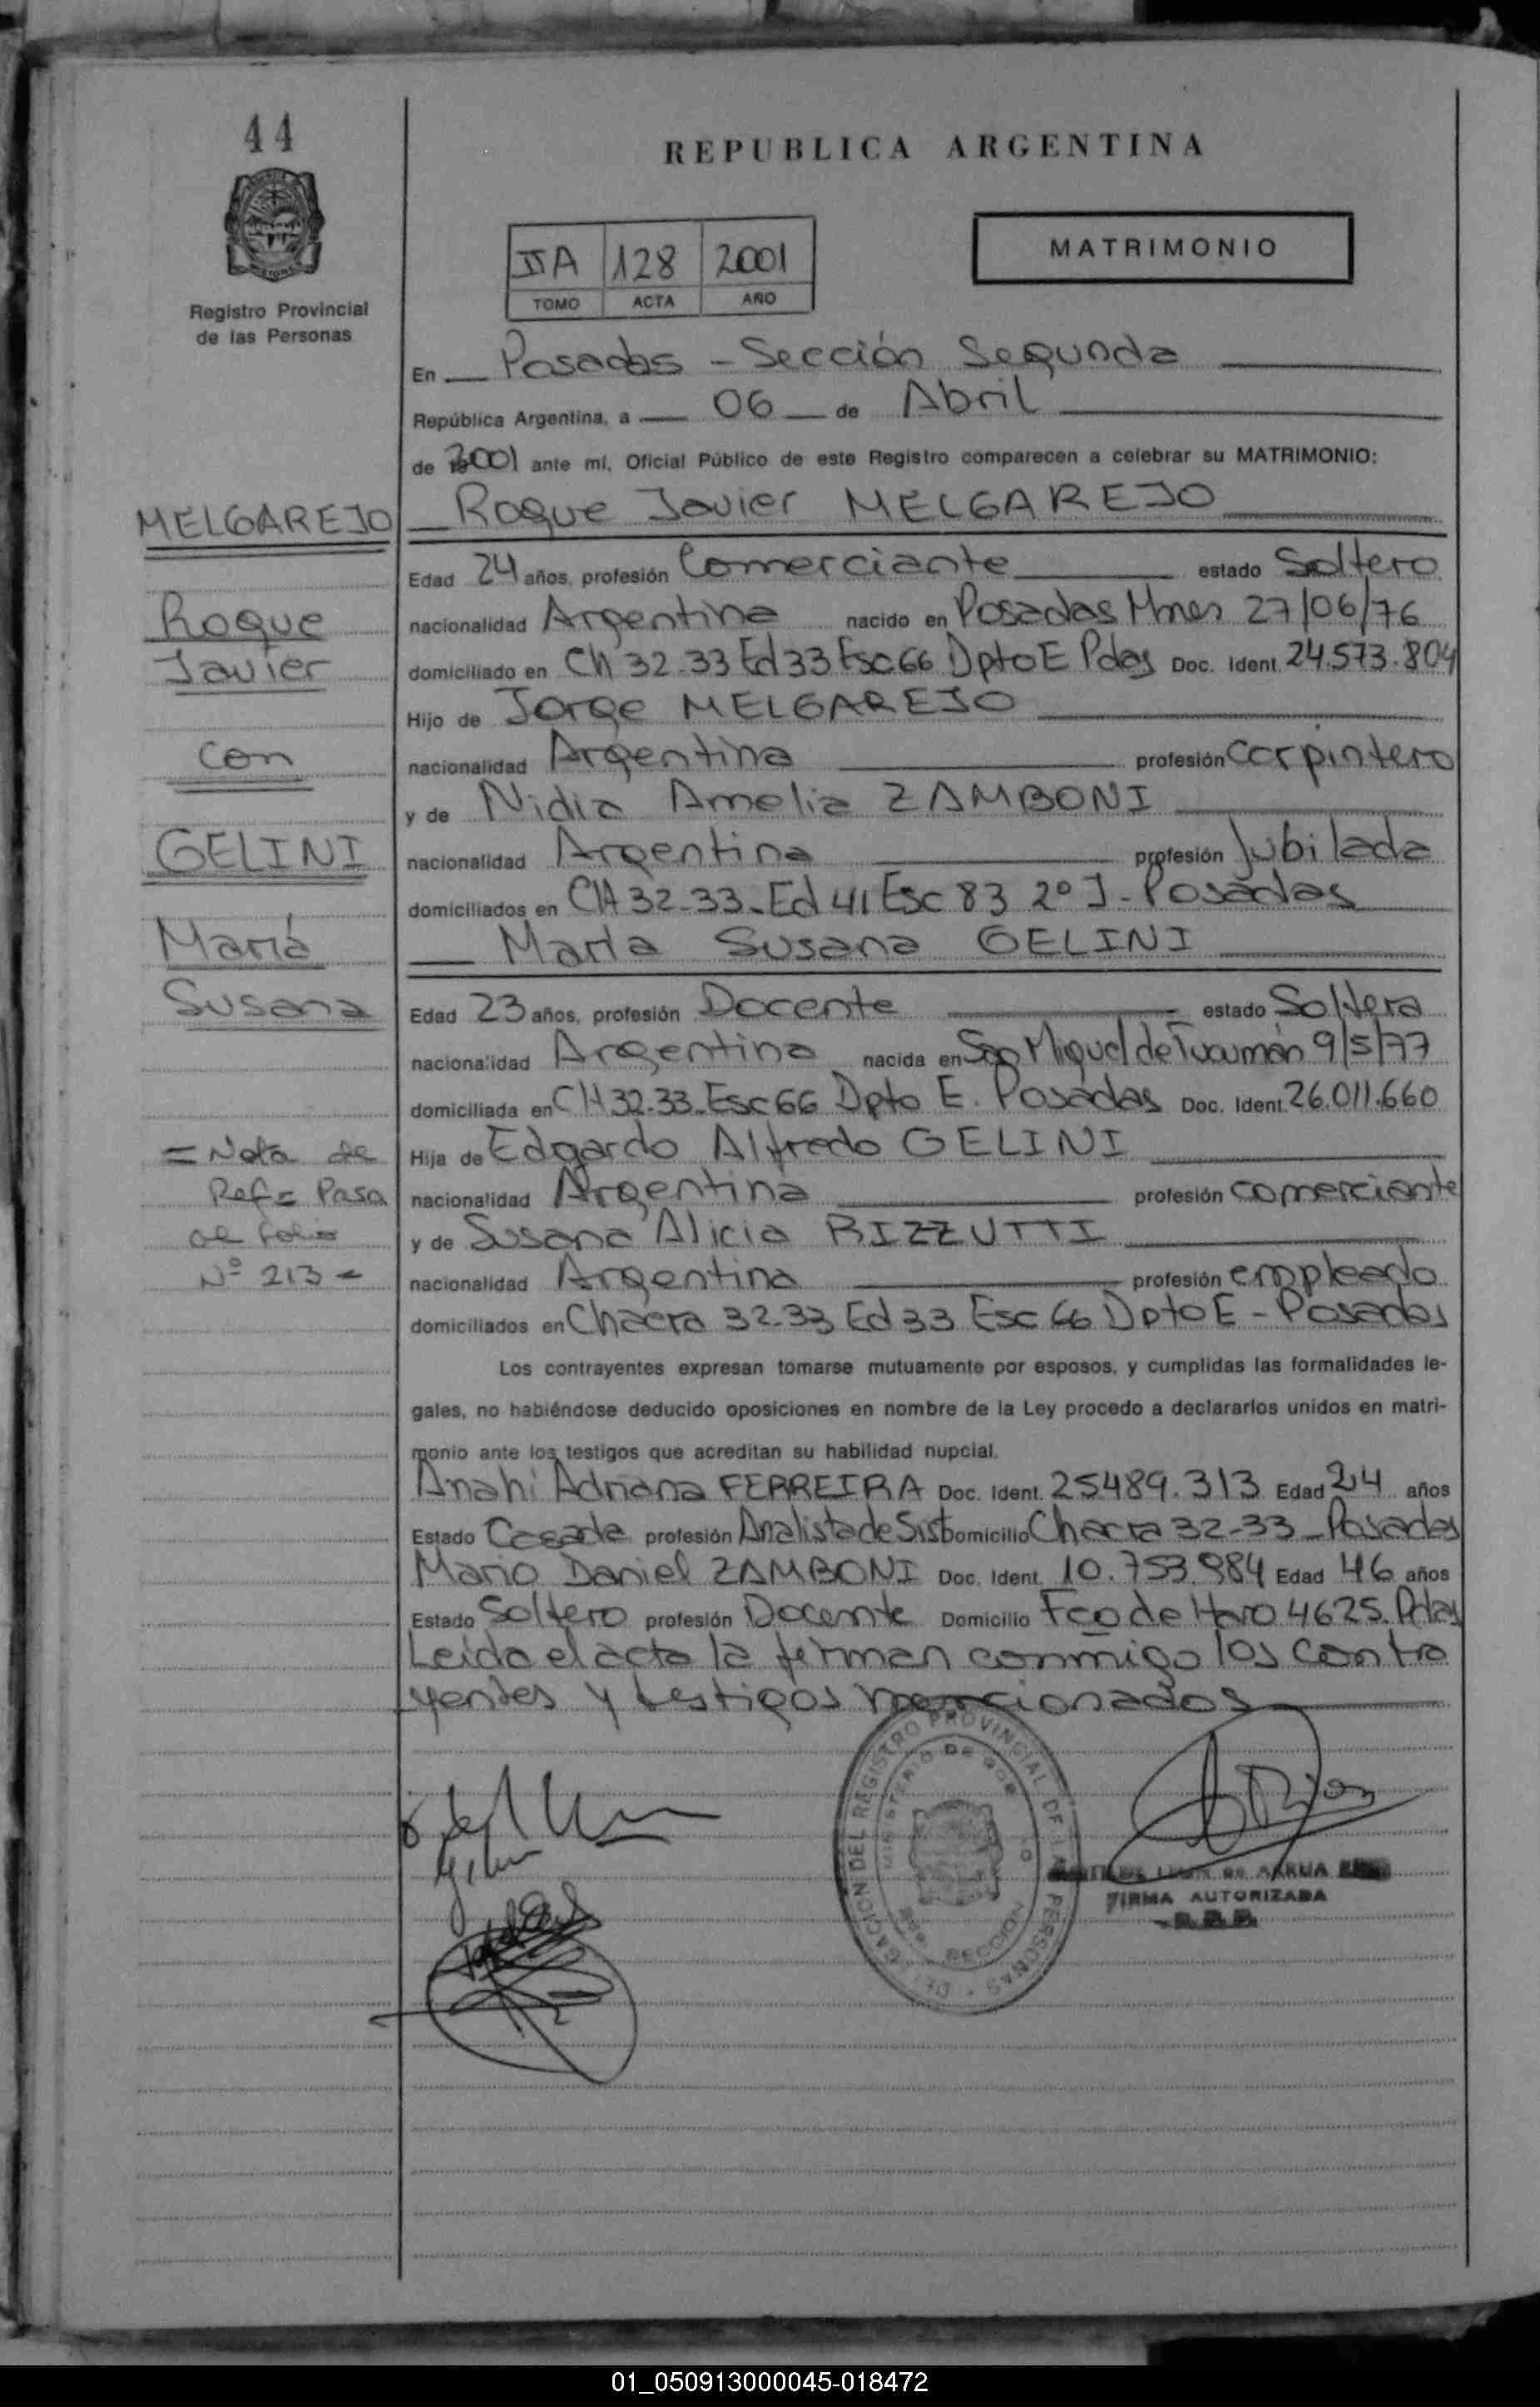 44
REPUBLICA ARGENTINA
IIA 128 2001
TOMO ACTA AÑO
MATRIMONIO
Registro Provincial
de las Personas
En Posadas - Sección Segunda
República Argentina, a 06 de Abril
de 2001 ante mí, Oficial Público de este Registro comparecen a celebrar su MATRIMONIO:
MELGAREJO
Roque
Javier
con
GELINI
María
Susana
= Nota de
Ref = Pasa
al folio
Nº 213 =
Roque Javier MELGAREJO
Edad 24 años, profesión Comerciante estado Soltero
nacionalidad Argentina nacido en Posadas Mnes 27/06/76
domiciliado en Ch 32-33 Ed 33 Esc 66 Dpto E Pdas Doc. Ident. 24.573.804
Hijo de Jorge MELGAREJO
nacionalidad Argentina profesión Carpintero
y de Nidia Amelia ZAMBONI
nacionalidad Argentina profesión Jubilada
domiciliados en CH 32-33-Ed 41 Esc 83 2º J - Posadas
María Susana GELINI
Edad 23 años, profesión Docente estado Soltera
nacionalidad Argentina nacida en San Miguel de Tucumán 9/5/77
domiciliada en CH 32-33-Esc 66 Dpto E. Posadas Doc. Ident. 26.011.660
Hija de Edgardo Alfredo GELINI
nacionalidad Argentina profesión comerciante
y de Susana Alicia RIZZUTTI
nacionalidad Argentina profesión empleado
domiciliados en Chacra 32-33 Ed 33 Esc 66 Dpto E - Posadas
Los contrayentes expresan tomarse mutuamente por esposos, y cumplidas las formalidades le-
gales, no habiéndose deducido oposiciones en nombre de la Ley procedo a declararlos unidos en matri-
monio ante los testigos que acreditan su habilidad nupcial.
Anahí Adriana FERREIRA Doc. Ident. 25489.313 Edad 24 años
Estado Casada profesión Analista de Sist Domicilio Chacra 32-33 - Posadas
Mario Daniel ZAMBONI Doc. Ident. 10.753.984 Edad 46 años
Estado Soltero profesión Docente Domicilio Fco de Haro 4625. Pdas
Leída el acta la firman conmigo los contra
yentes y testigos mencionados
DELEGACION DEL REGISTRO PROVINCIAL DE LAS PERSONAS
MINISTERIO DE GOB
SECCION
de ARRUA
FIRMA AUTORIZADA
01_050913000045-018472